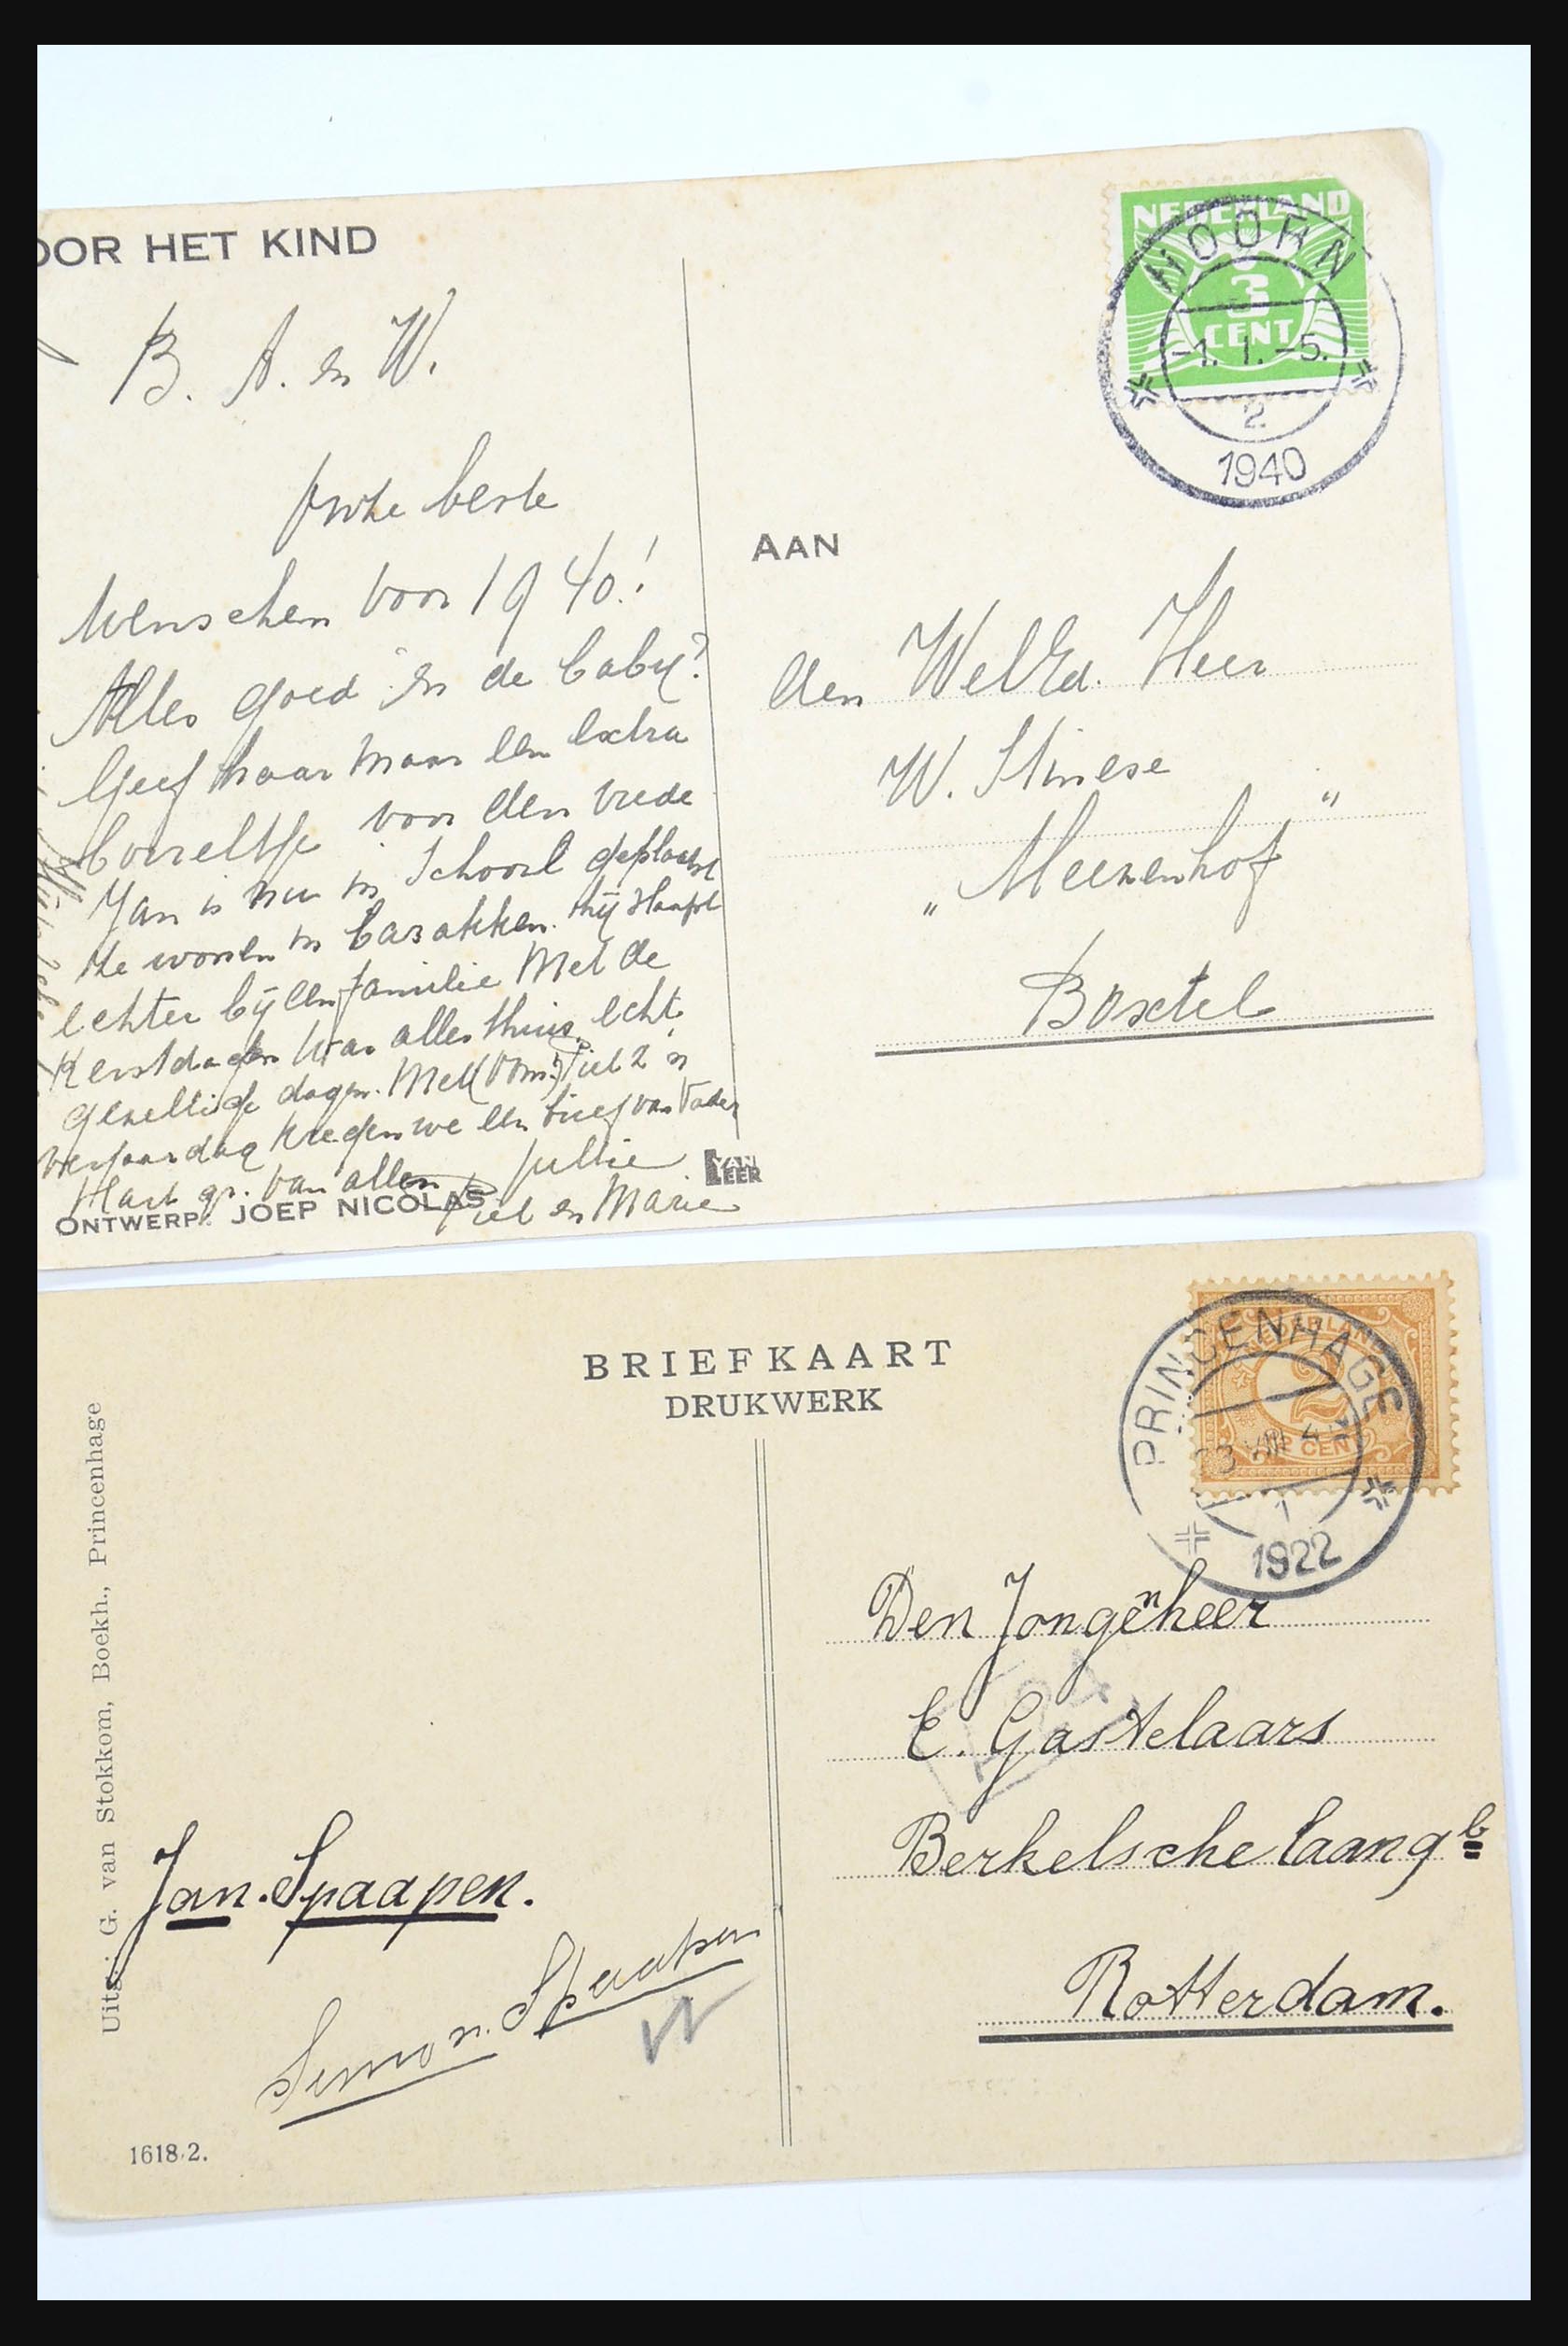 OOR HET KIND
B. A. en W.
beste
Wenschen voor 1940!
Alles goed en de baby?
Geef haar maar een extra
borreltje voor den vrede
Jan is nu in Schoorl geplaatst
Ze wonen in barakken. Hij slaapt
echter bij een familie Met de
Kerstdagen was alles thuis, echt
gezellige dagen. Met (Oom) Piet z'n
verjaardag kregen we een brief van Vader
Hart. gr. van allen jullie
Piet en Marie
ONTWERP: JOEP NICOLAS
VAN LEER
NEDERLAND
3
CENT
HOORN
-1. 1. -5.
2
1940
AAN
den WelEd. Heer
W. Stinese
„Meerenhof"
Boxtel
BRIEFKAART
DRUKWERK
Uitg.: G. van Stokkom, Boekh., Princenhage
Jan. Spaapen.
Simon. Spaapen
1618.2.
NEDERLAND
2
CENT
PRINCENHAGE
VIII
1
1922
Den Jongenheer
E. Gastelaars
Berkelsche laan g b
Rotterdam.